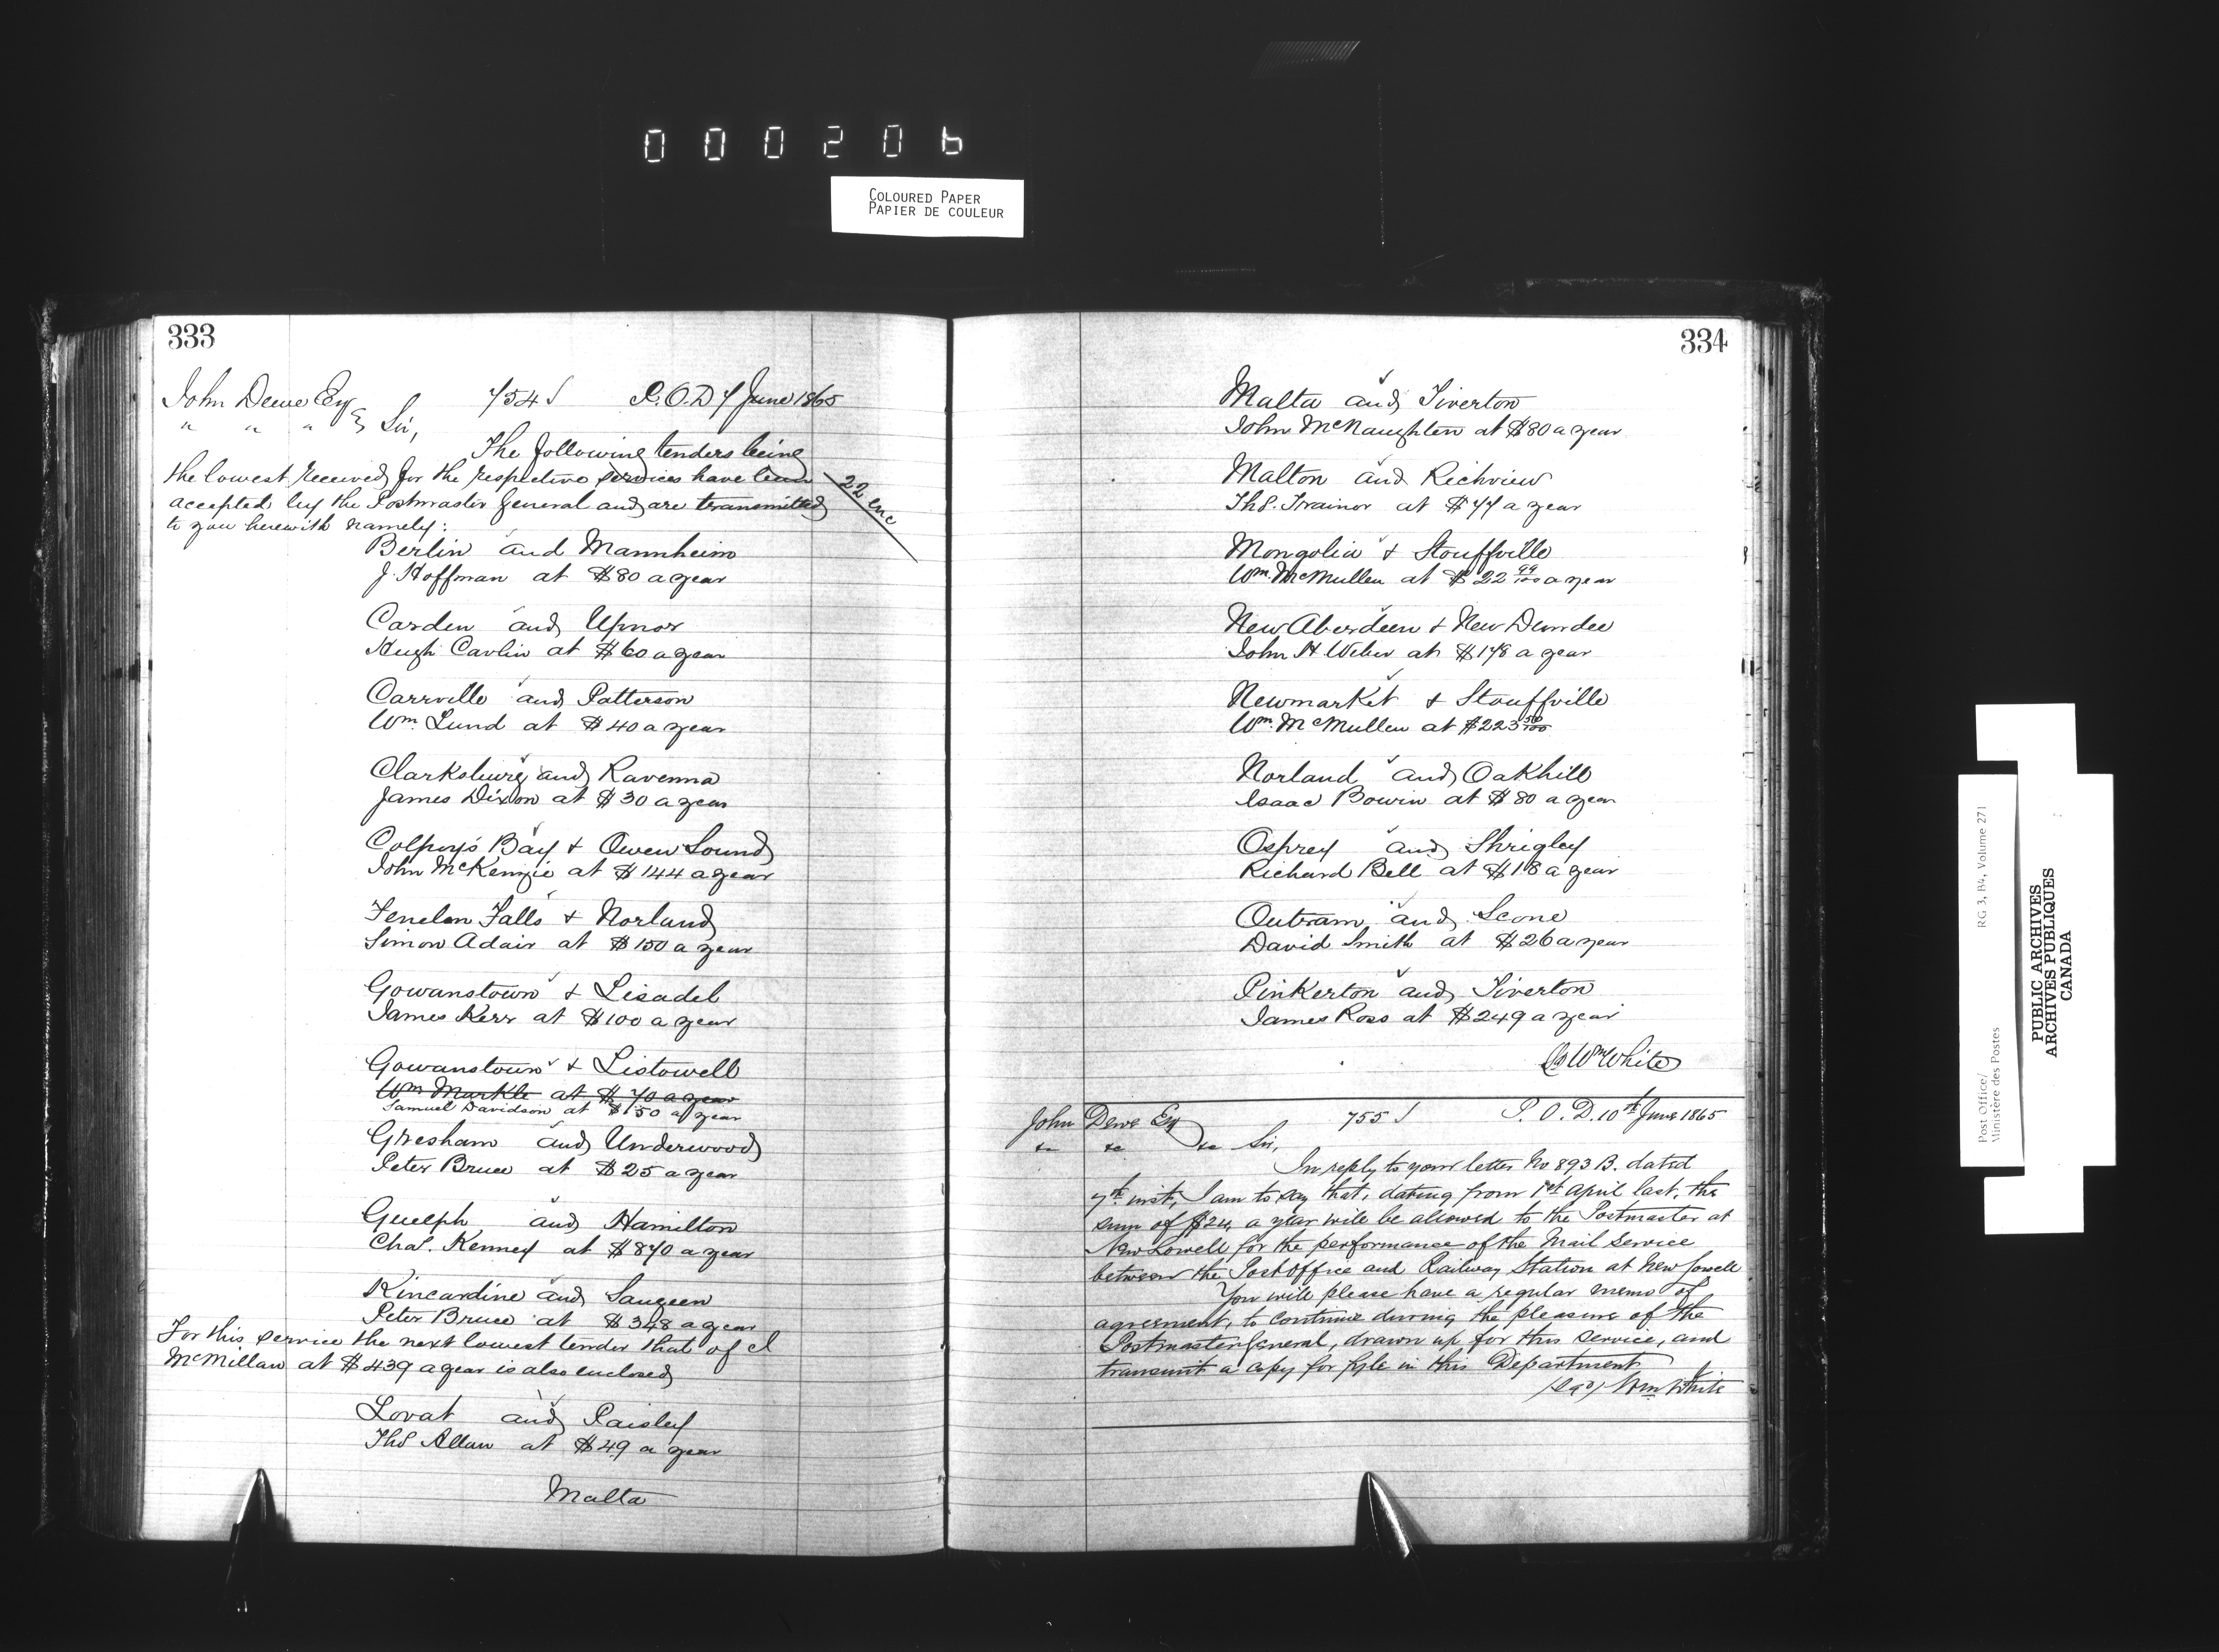 000206
COLOURED PAPER
PAPIER DE COULEUR
333
John Dewe Esq 754 S P.O.D 7 June 1865
" " " Sir,
The following tenders being
the lowest received for the respective services have been
accepted by the Postmaster General and are transmitted
to you herewith namely:
22 enc
Berlin and Mannheim
J. Hoffman at $80 a year
Carden and Upnor
Hugh Carlin at $60 a year
Carrville and Patterson
Wm. Lund at $40 a year
Clarksburg and Ravenna
James Dixon at $30 a year
Colpoy's Bay & Owen Sound
John McKenzie at $144 a year
Fenelon Falls & Norland
Simon Adair at $150 a year
Gowanstown & Lisadel
James Kerr at $100 a year
Gowanstown & Listowell
Wm Markle at $70 a year
Samuel Davidson at $150 a year
Gresham and Underwood
Peter Bruce at $25 a year
Guelph and Hamilton
Chas. Kenney at $870 a year
Kincardine and Saugeen
Peter Bruce at $348 a year
For this service the next lowest tender that of
McMillan at $439 a year is also enclosed
Lovat and Paisley
Thos Allan at $49 a year
Malta
334
Malta and Tiverton
John McNaughten at $80 a year
Malton and Richview
Thos. Trainor at $77 a year
Mongolia & Stouffville
Wm. McMullen at $22 99/100 a year
New Aberdeen & New Dundee
John H Weber at $178 a year
Newmarket & Stouffville
Wm. McMullen at $223 50/100
Norland and Oakhill
Isaac Bowin at $80 a year
Osprey and Shrigley
Richard Bell at $18 a year
Outram and Scone
David Smith at $26 a year
Pinkerton and Tiverton
James Ross at $249 a year
Wm White
John Dewe Esq 755 S P.O.D. 10th June 1865
&c &c &c Sir,
In reply to your letter No 893 B. dated
7th inst, I am to say that, dating from 1st April last, the
sum of $24, a year will be allowed to the Postmaster at
New Lowell for the performance of the Mail Service
between the Post Office and Railway Station at New Lowell
You will please have a regular memo of
agreement, to continue during the pleasure of the
Postmaster General, drawn up for this service, and
transmit a copy for fyle in this Department
(sgd) Wm White
Post Office/ RG 3, B4, Volume 271
Ministère des Postes
PUBLIC ARCHIVES
ARCHIVES PUBLIQUES
CANADA